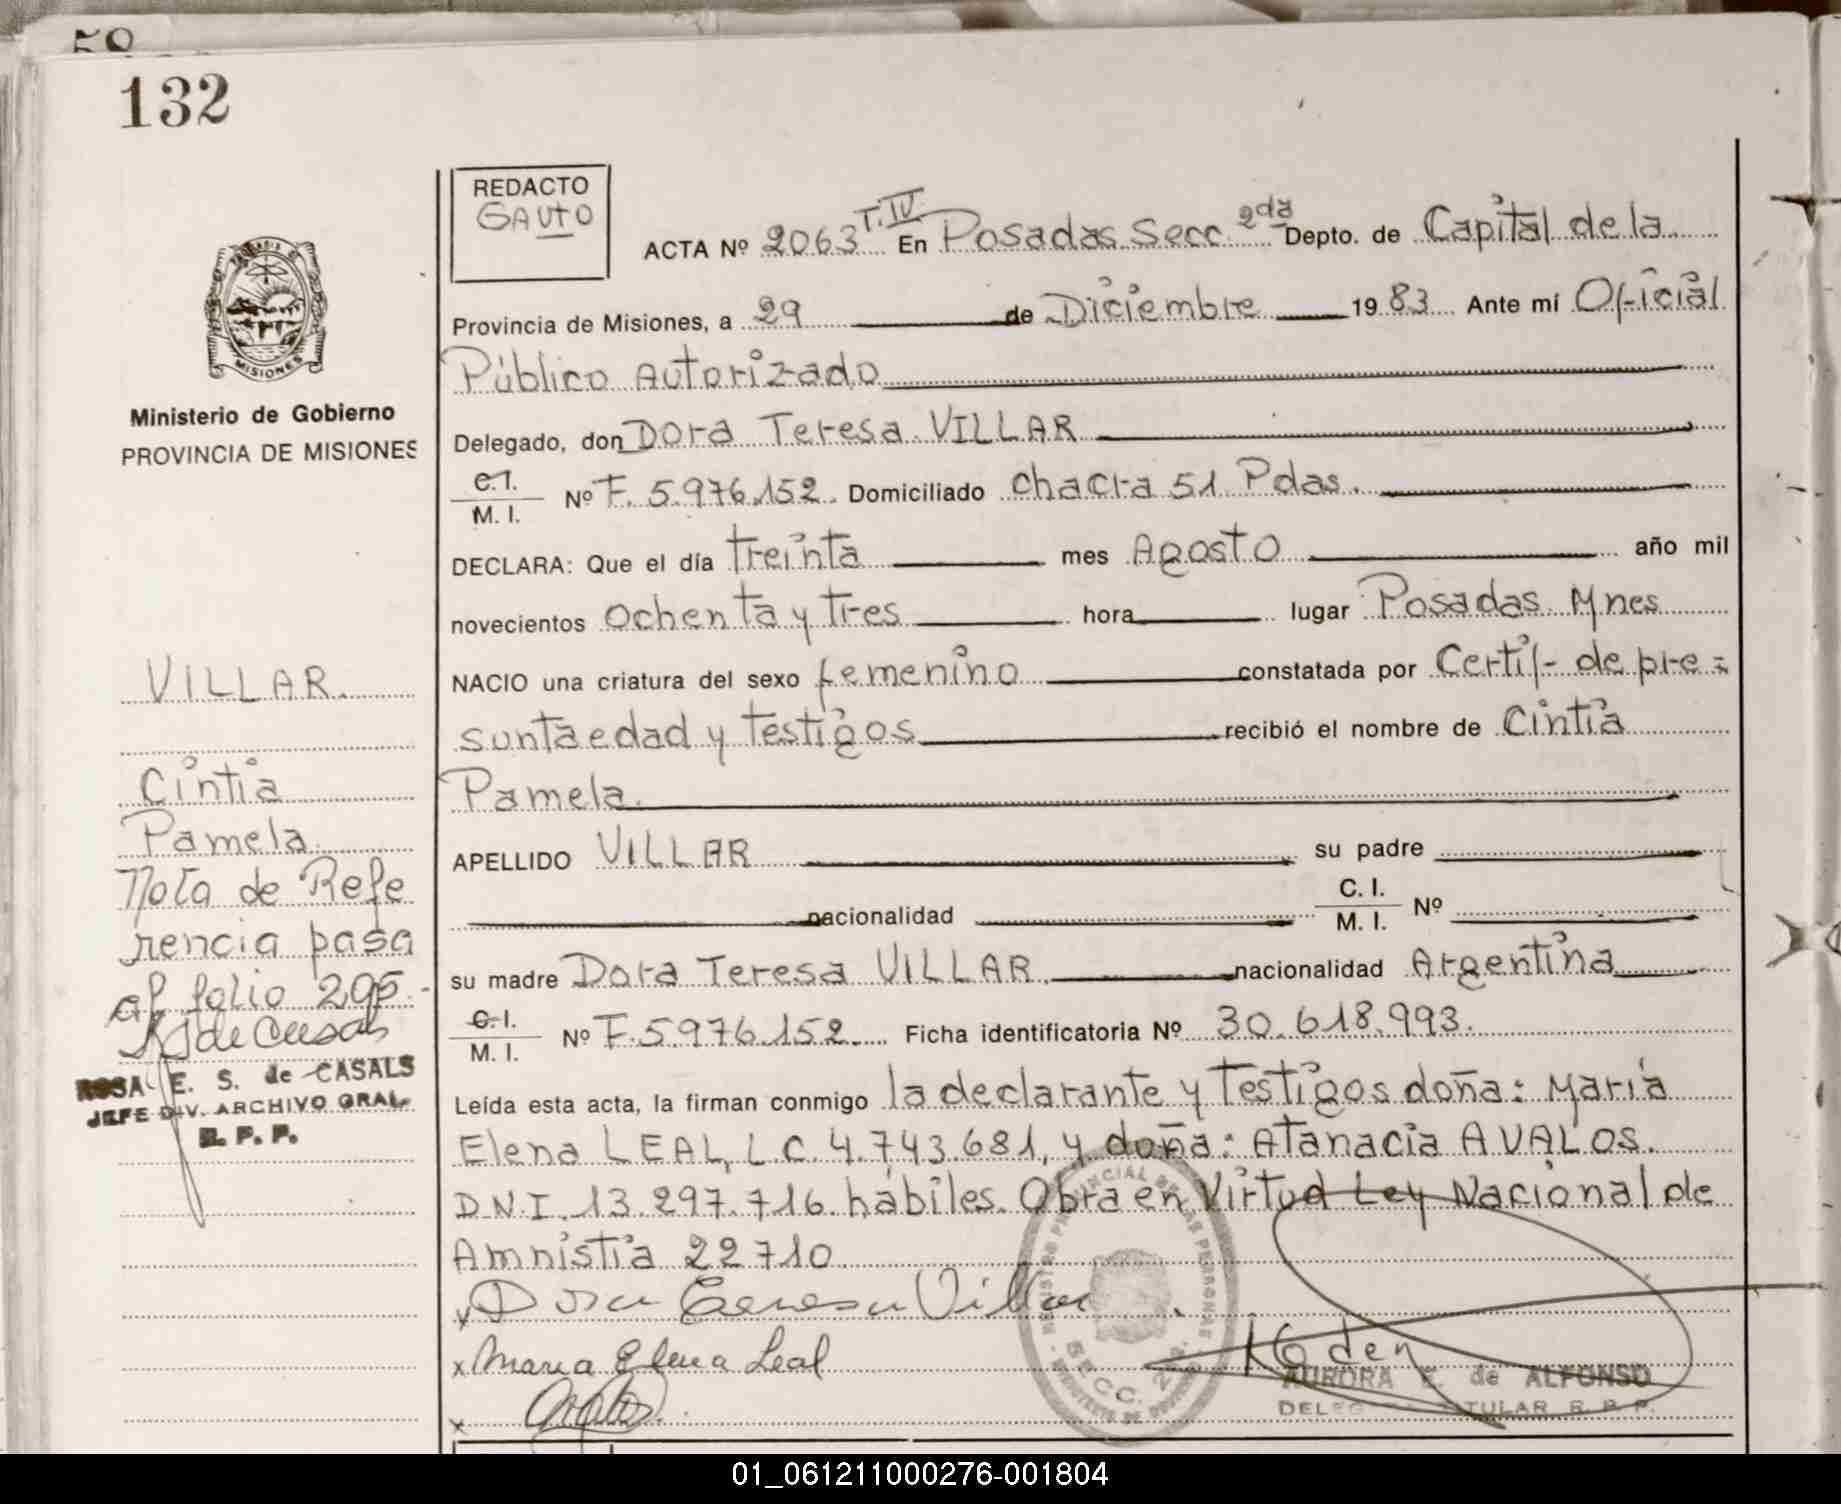 58
132
REDACTO
GAUTO
ACTA Nº 2063 T.IV En Posadas Secc. 2da Depto. de Capital de la
Provincia de Misiones, a 29 de Diciembre 1983 Ante mí Oficial
Público Autorizado
Delegado, don Dora Teresa VILLAR
C.I.
M. I. Nº F. 5.976.152. Domiciliado chacra 51 Pdas.
DECLARA: Que el día treinta mes Agosto año mil
novecientos ochenta y tres hora lugar Posadas Mnes
NACIO una criatura del sexo femenino constatada por Certif. de pre=
suntaedad y testigos recibió el nombre de Cintia
Pamela.
APELLIDO VILLAR su padre
nacionalidad C. I.
M. I. Nº
su madre Dora Teresa VILLAR nacionalidad Argentina
C.I.
M. I. Nº F.5.976.152. Ficha identificatoria Nº 30.618.993.
Leída esta acta, la firman conmigo la declarante y testigos doña: María
Elena LEAL, L.C. 4.743.681, y doña: Atanacia AVALOS.
D.N.I. 13.297.716 hábiles. Obra en Virtud Ley Nacional de
Amnistia 22710
x Dora Teresa Villar
x Maria Elena Leal
x
REGISTRO PROVINCIAL DE LAS PERSONAS
SECC. 2da.
AURORA E. de ALFONSO
TITULAR R. P. P.
MISIONES
Ministerio de Gobierno
PROVINCIA DE MISIONES
VILLAR.
Cintia
Pamela.
Nota de Refe
rencia pasa
al folio 295.-
ROSA E. S. de CASALS
JEFE DIV. ARCHIVO GRAL.
R. P. P.
01_061211000276-001804